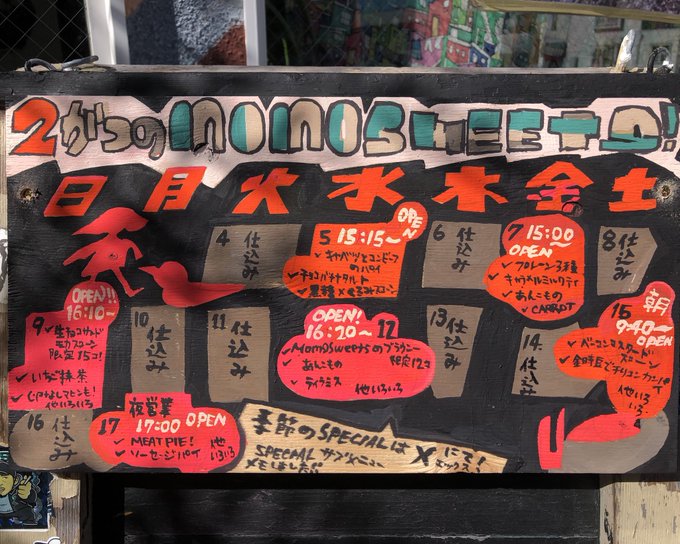 2がつのMOMOSWEETS!
日 月 火 水 木 金 土
4 仕込み
5 15:15〜 OPEN
✓キャベツとコンビーフのパイ
✓チョコバナナタルト
✓黒糖×くるみスコーン
6 仕込み
7 15:00〜 OPEN
✓プレーン3種
✓キャラメルミルクティ
✓あんこもの
✓CARROT
8 仕込み
OPEN!! 16:10〜
9 ✓生ねこ
限定15コ!
✓いちご抹茶
他いろいろ
10 仕込み
11 仕込み
OPEN! 16:20〜 12
✓MomoSweetsのブラウニー
限定12コ
✓あんこもの
✓ティラミス 他いろいろ
13 仕込み
14 仕込み
15 朝 9:40〜 OPEN
✓ベーコンマスタードスコーン
✓金時豆とチリコンカンパイ
他いろいろ
16 仕込み
17 夜営業 17:00 OPEN
✓MEAT PIE!
✓ソーセージパイ
他いろいろ
季節のSPECIALは
Xにて!
エックス
SPECIAL サンドメニュー